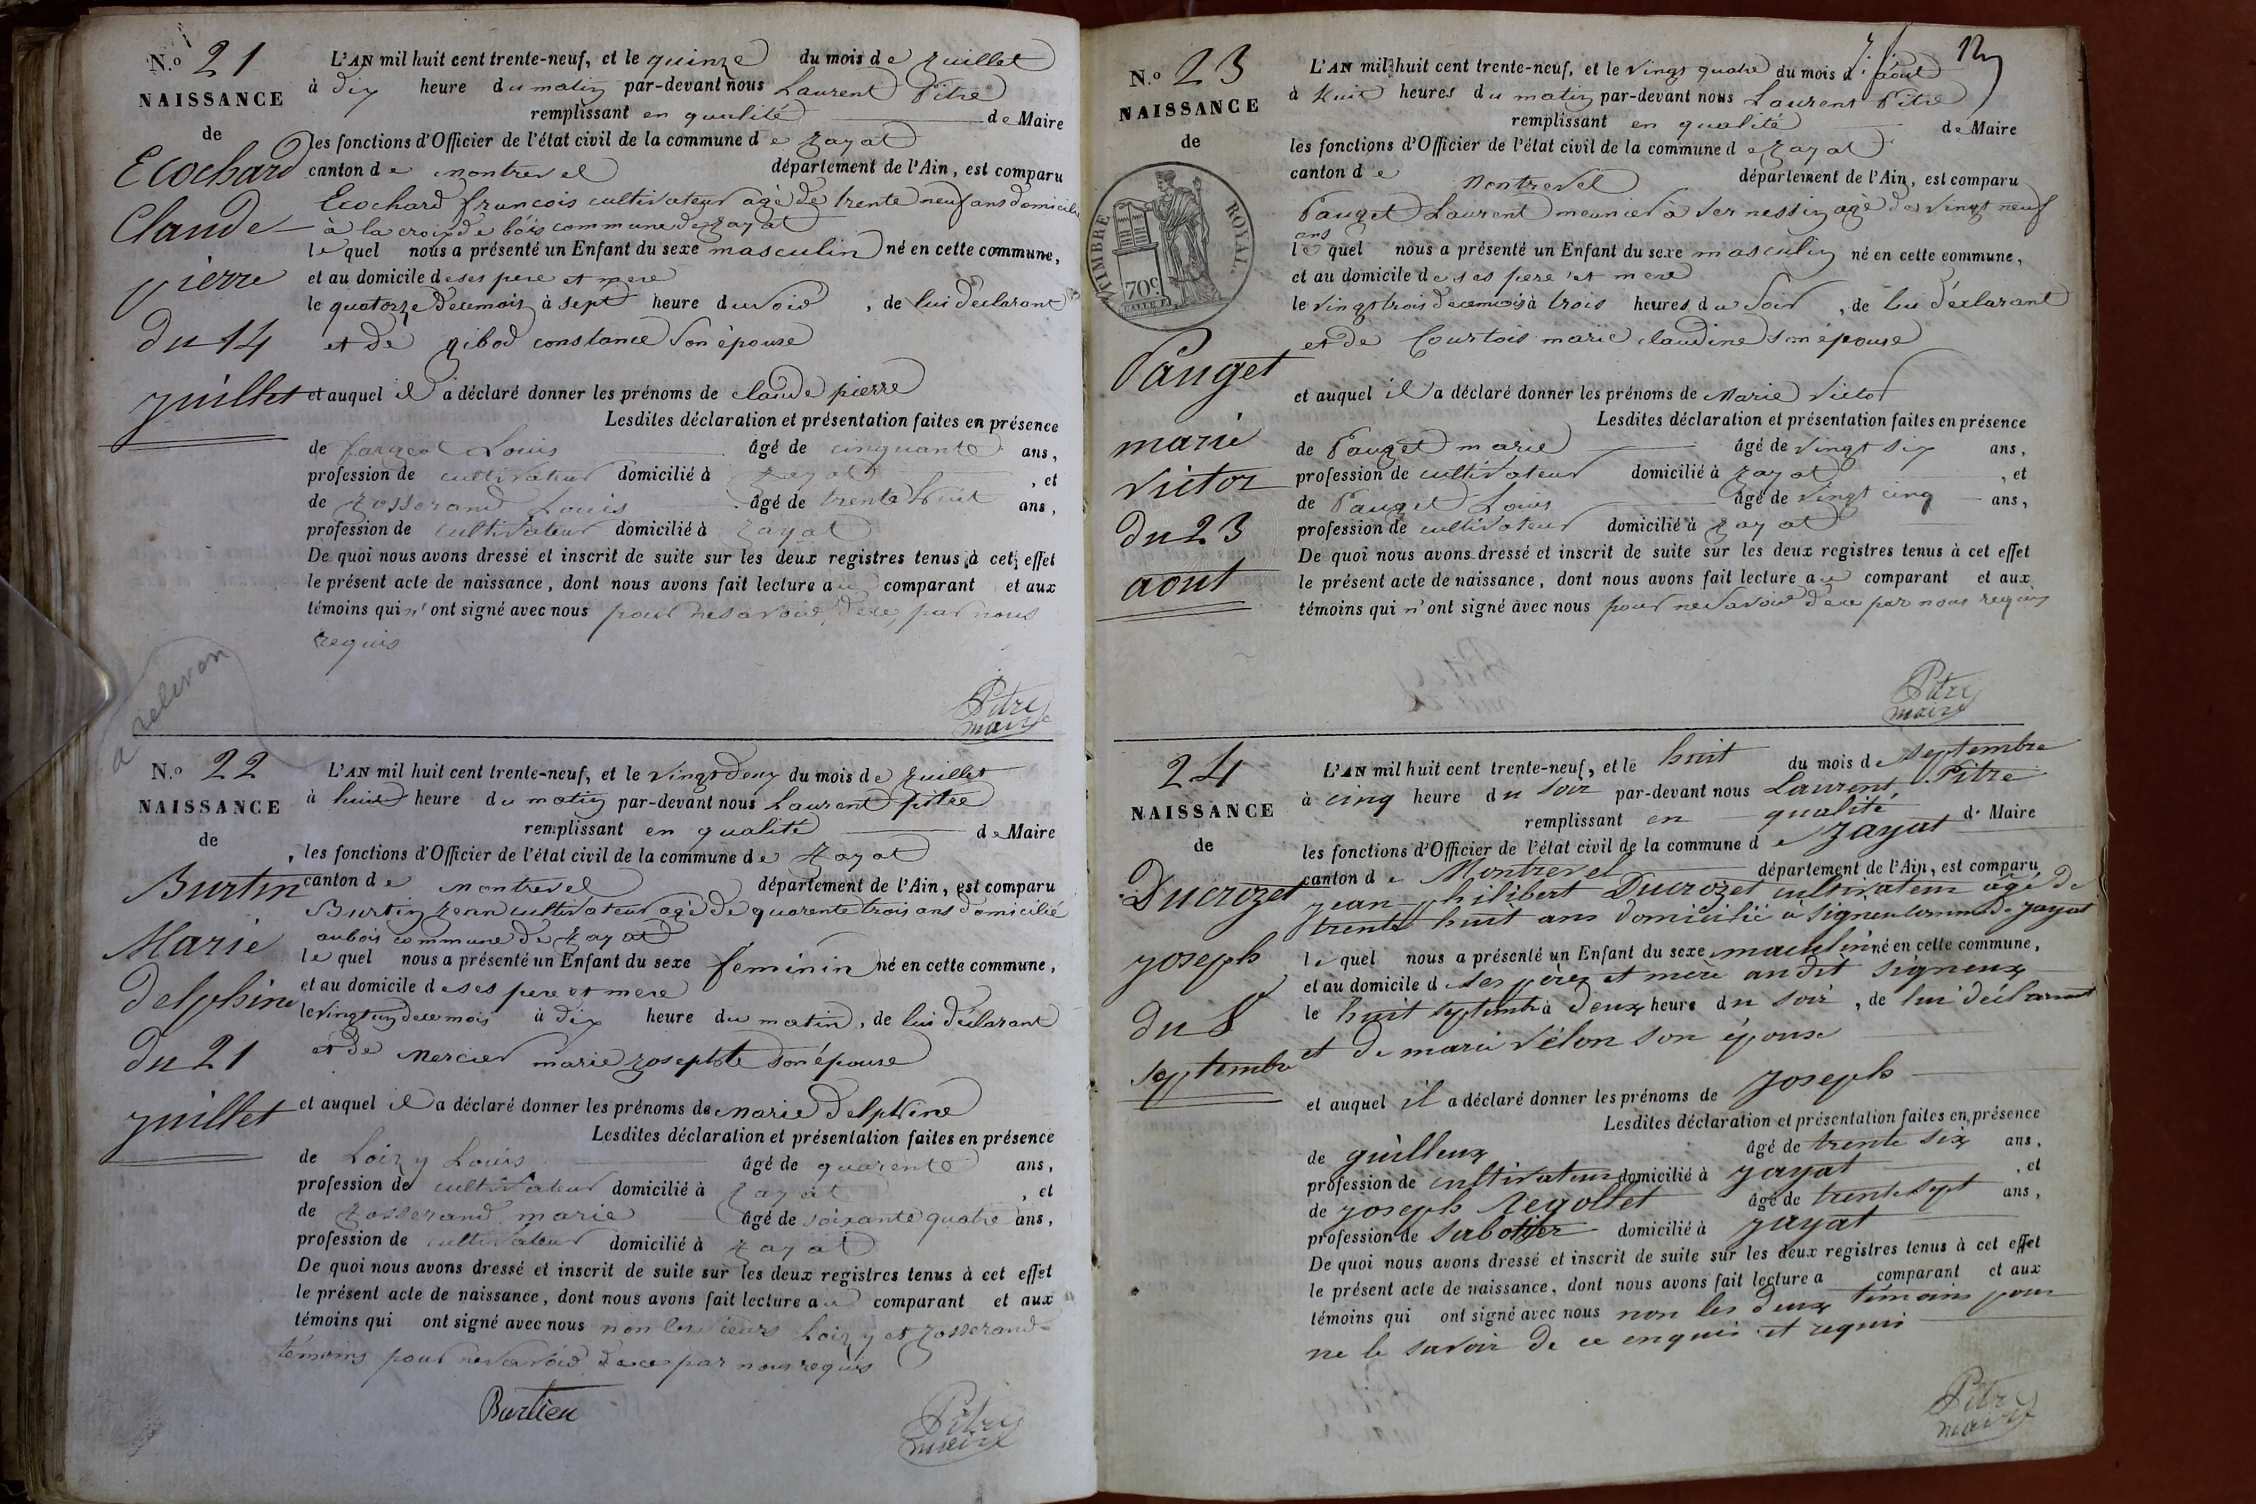 N.o 21
NAISSANCE
de
Ecochard
Claude
pierre
du 14
juillet
L'AN mil huit cent trente-neuf, et le quinze du mois de juillet
à dix heure du matin par-devant nous Laurent Pitre
remplissant en qualité de Maire
les fonctions d'Officier de l'état civil de la commune de jayat
canton de montrevel département de l'Ain, est comparu
Ecochard francois cultivateur agé de trente neuf ans domicilié
à la croix de bois commune de jayat
lequel nous a présenté un Enfant du sexe masculin né en cette commune,
et au domicile de ses pere et mere
le quatorze de ce mois à sept heure du soir, de lui déclarant
et de gibod constance son épouse
et auquel il a déclaré donner les prénoms de claude pierre
Lesdites déclaration et présentation faites en présence
de fargeot Louis âgé de cinquante ans,
profession de cultivateur domicilié à jayat, et
de josserand Louis âgé de trente huit ans,
profession de cultivateur domicilié à jayat
De quoi nous avons dressé et inscrit de suite sur les deux registres tenus à cet effet
le présent acte de naissance, dont nous avons fait lecture au comparant et aux
témoins qui n'ont signé avec nous pour ne savoir, de ce, par nous
requis
Pitre
maire
a relever
N.o 22
NAISSANCE
de
Burtin
Marie
delphine
du 21
juillet
L'AN mil huit cent trente-neuf, et le vingt deux du mois de juillet
à huit heure du matin par-devant nous Laurent pitre
remplissant en qualité de Maire
les fonctions d'Officier de l'état civil de la commune de jayat
canton de montrevel département de l'Ain, est comparu
Burtin jean cultivateur agé de quarente trois ans domicilié
au bois commune de jayat
lequel nous a présenté un Enfant du sexe féminin né en cette commune,
et au domicile de ses pere et mere
le vingt un de ce mois à dix heure du matin, de lui déclarant
et de Mercier marie josephte son épouse
et auquel il a déclaré donner les prénoms de marie delphine
Lesdites déclaration et présentation faites en présence
de Loizy Louis âgé de quarente ans,
profession de cultivateur domicilié à jayat, et
de josserand marie âgé de soixante quatre ans,
profession de cultivateur domicilié à jayat
De quoi nous avons dressé et inscrit de suite sur les deux registres tenus à cet effet
le présent acte de naissance, dont nous avons fait lecture au comparant et aux
témoins qui ont signé avec nous non les sieurs Loizy et josserand
témoins pour ne savoir de ce par nous requis
Burtin
Pitre
maire
12
N.o 23
NAISSANCE
de
TIMBRE ROYAL
70c
Pauget
marie
victor
du 23
aout
L'AN mil huit cent trente-neuf, et le vingt quatre du mois d'aout
à huit heures du matin par-devant nous Laurent Pitre
remplissant en qualité de Maire
les fonctions d'Officier de l'état civil de la commune de jayat
canton de Montrevel département de l'Ain, est comparu
Pauget Laurent meunier à agé de vingt neuf
ans
lequel nous a présenté un Enfant du sexe masculin né en cette commune,
et au domicile de ses pere et mere
le vingt trois de ce mois à trois heures du soir, de lui déclarant
et de Courtois marie claudine son épouse
et auquel il a déclaré donner les prénoms de Marie victor
Lesdites déclaration et présentation faites en présence
de Pauget marie âgé de vingt six ans,
profession de cultivateur domicilié à jayat, et
de Pauget Louis âgé de vingt cinq ans,
profession de cultivateur domicilié à jayat
De quoi nous avons dressé et inscrit de suite sur les deux registres tenus à cet effet
le présent acte de naissance, dont nous avons fait lecture au comparant et aux
témoins qui n'ont signé avec nous pour ne savoir de ce par nous requis
Pitre
maire
24
NAISSANCE
de
Ducrozet
joseph
du 8
septembre
L'AN mil huit cent trente-neuf, et le huit du mois de septembre
à cinq heure du soir par-devant nous Laurent Pitre
remplissant en qualité de Maire
les fonctions d'Officier de l'état civil de la commune de jayat
canton de Montrevel département de l'Ain, est comparu
jean philibert Ducrozet cultivateur agé de
trente huit ans domicilié a signeux commune de jayat
lequel nous a présenté un Enfant du sexe masculin né en cette commune,
et au domicile de ses père et mère audit signeux
le huit septembre à deux heure du soir, de lui déclarant
et de marie vélon son épouse
et auquel il a déclaré donner les prénoms de joseph
Lesdites déclaration et présentation faites en présence
de guilleux âgé de trente six ans,
profession de cultivateur domicilié à jayat, et
de joseph âgé de trente sept ans,
profession de sabotier domicilié à jayat
De quoi nous avons dressé et inscrit de suite sur les deux registres tenus à cet effet
le présent acte de naissance, dont nous avons fait lecture a comparant et aux
témoins qui ont signé avec nous non les deux témoins pour
ne le savoir de ce enquis et requis
Pitre
maire